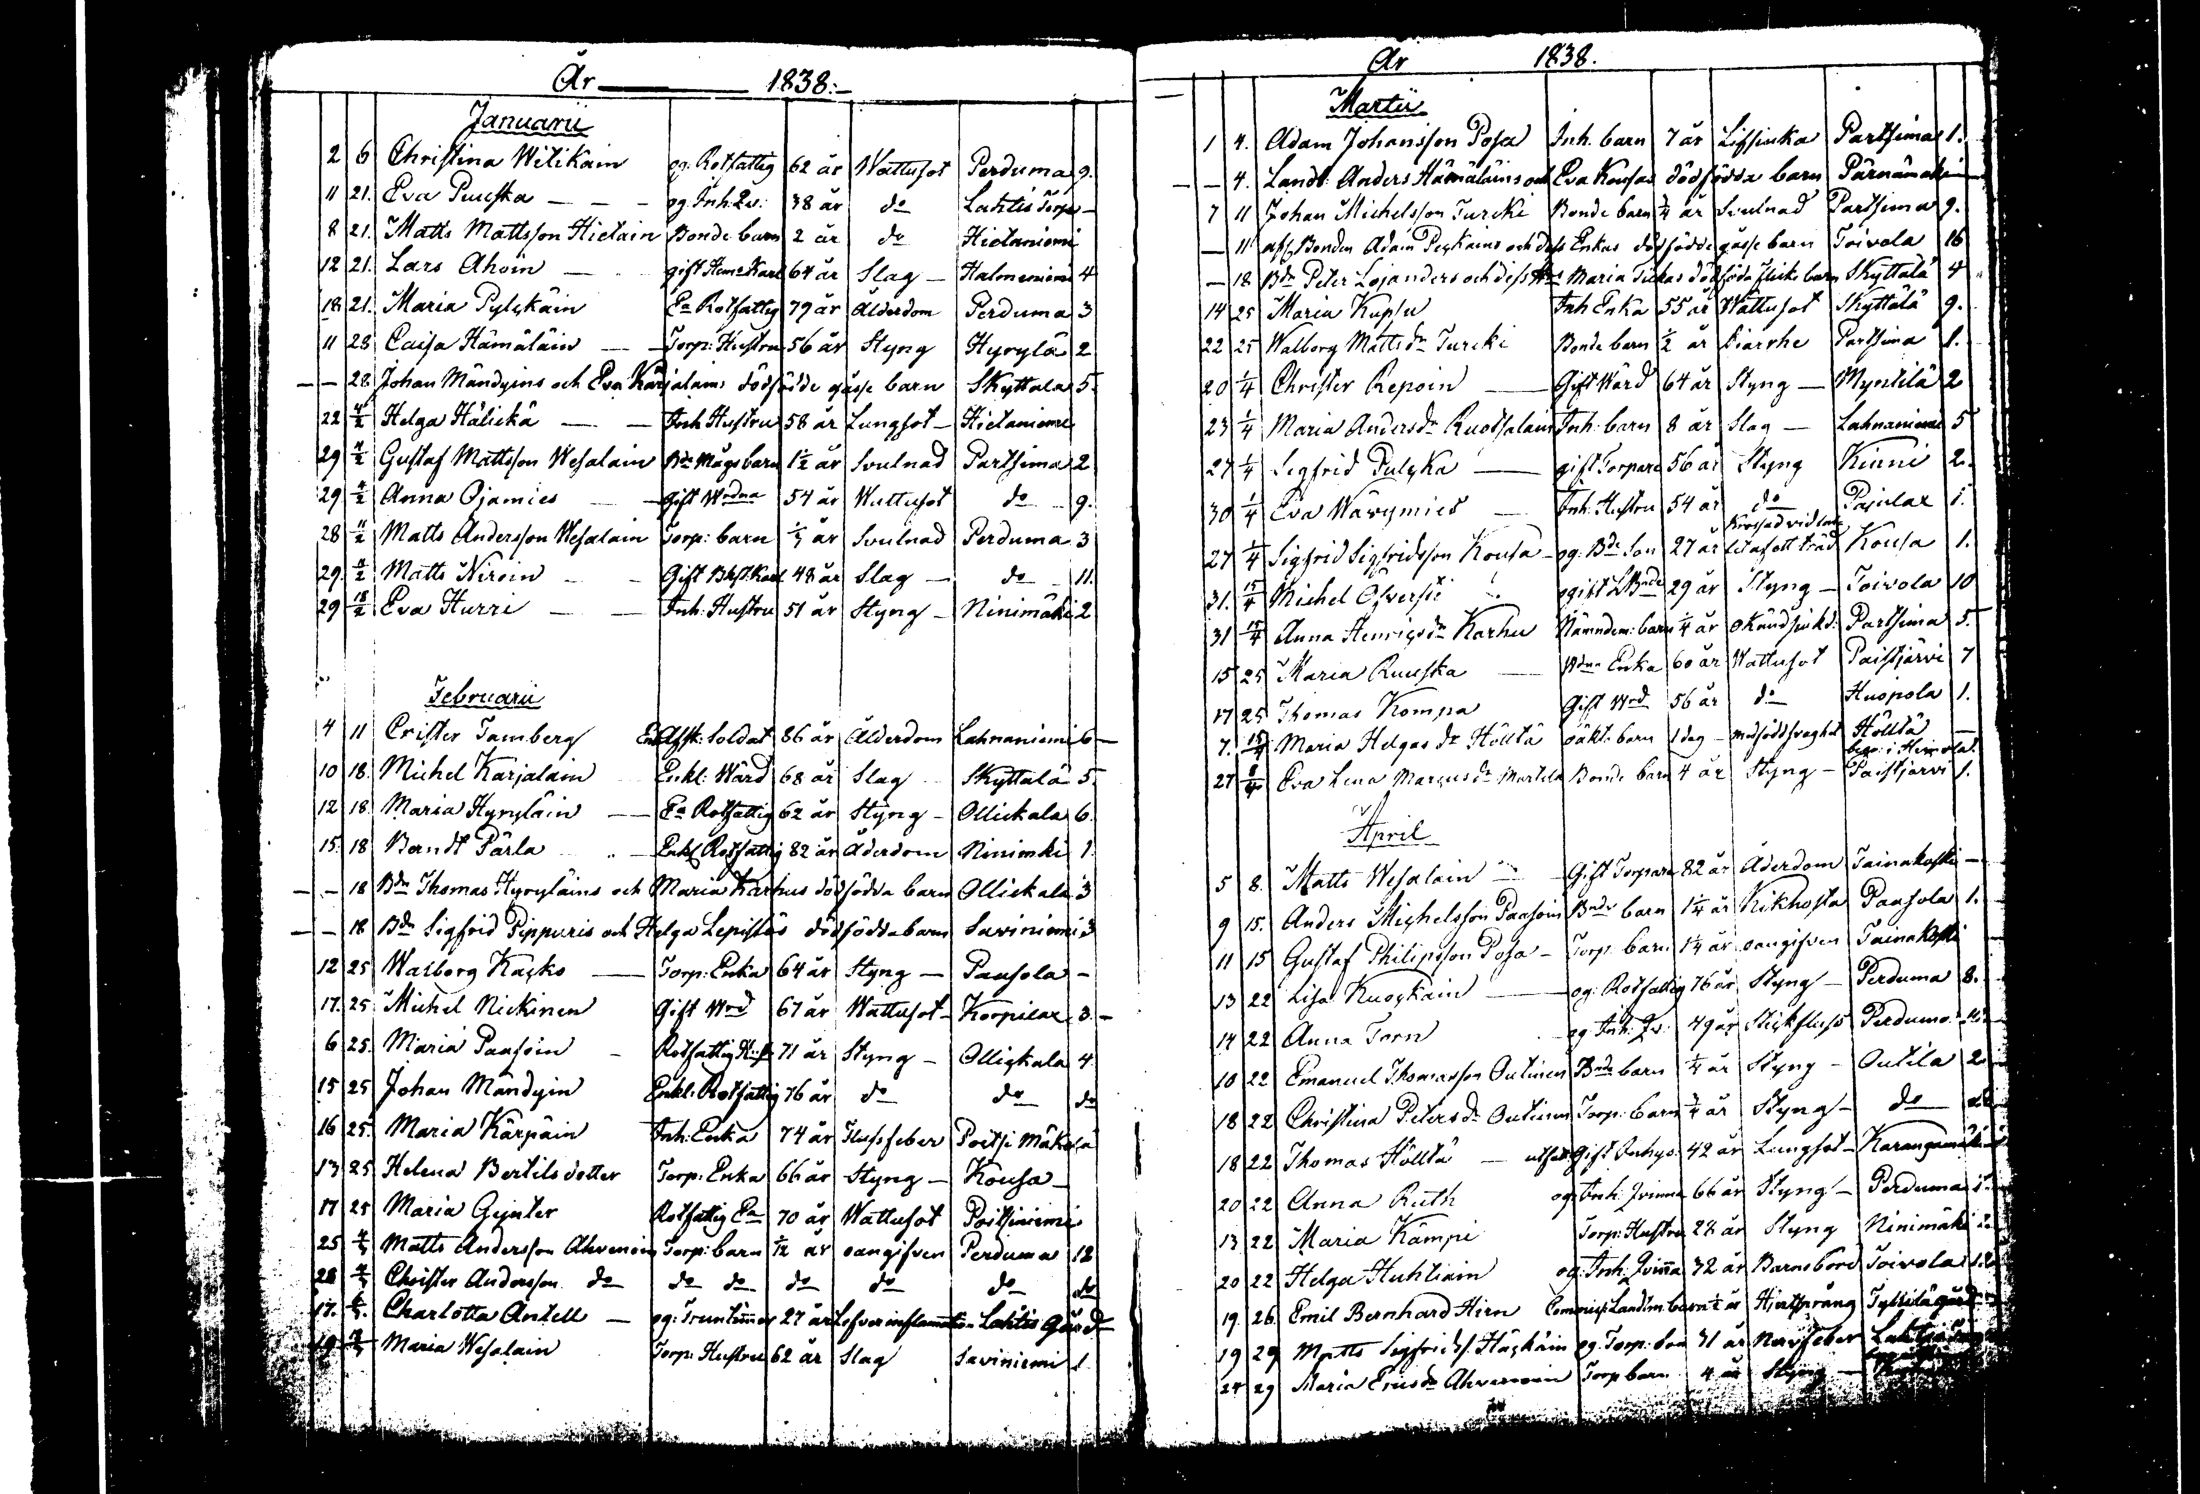 År 1838:
Januarii
2 6 Christina Witikain og: Rotfattig 62 år Wattusot Perduma 9.
11 21. Eva Puuska og Inh: Qv: 38 år do Lahtis Torp
8 21. Matts Mattsson Hietain Bonde barn 2 år do Hietaniemi
12 21. Lars Ahoin gift Hem: Karl 64 år Slag Halmeniemi 4
18 21. Maria Pylckäin Ea Rotfattig 79 år Ålderdom Perduma 3
11 28 Caisa Hämäläin Torp: Hustru 56 år Styng Hyrylä 2
28 Johan Mändyins och Eva Karjalains dödfödde gåsse barn Skyttala 5.
22 4/2 Helga Hälickä Inh Hustru 58 år Lungsot Hietaniemi
29 4/2 Gustaf Mattsson Wesalain Bde Mågs barn 1 1/2 år Svulnad Partsima 2
29 4/2 Anna Ojamies Gift Wrdna 54 år Wattusot do 9.
28 11/2 Matts Andersson Wesalain Torp: barn år Svulnad Perduma 3
29. 11/2 Matts Niroin Gift Karl 48 år Slag do 11.
29 18/2 Eva Hurri Inh: Hustru 51 år Styng Ninimäki 2
Februarii
4 11 Crister Tamberg Enkl Afsk: Soldat 86 år Ålderdom Lahnaniemi 6
10 18. Michel Karjalain Enkl: Wärd 68 år Slag Skyttalä 5.
12 18. Maria Hyryläin Ea Rotfattig 62 år Styng Ollickala 6.
15. 18 Berndt Pärla Enkl Rotfattig 82 år Åderdom Ninimki 1.
18 Bdn Thomas Hyryläins och Maria Karhus dödfödda barn Ollickala 3
18 Bdn Sigfrid Pippuris och Helga Lepistös dödfödda barn Saviniemi 3
12 25 Walborg Kacko Torp: Enka 64 år Styng Paasola
17. 25 Michel Nickinen Gift Wrd 67 år Wattusot Korpilax 3.
6 25. Maria Paasoin Rotfattig H: 71 år Styng Ollickala 4.
15 25 Johan Mändyin Enkl: Rotfattig 76 år do do do
16 25. Maria Kärpäin Inh: Enka 74 år Flussfeber Poitsi Mäkelä
13 25 Helena Bertils dotter Torp: Enka 66 år Styng Kousa
17 25 Maria Gynter Rotfattig Ea 70 år Wattusot Poitsiniemi
25 4/3 Matts Andersson Ahvenoin Torp: barn /12 år oangifven Perduma 12
28 4/3 Christer Andersson do do do do do do do
17. Charlotta Antell og: Fruntimmer 27 år Lefverinflammation Lahtis Gård
19 Maria Wesalain Torp: Hustru 62 år Slag Saviniemi 1
År 1838.
Martii
1 4. Adam Johansson Posa Inh. barn 7 år Lifsiuka Partsima 1.
4. Landb: Anders Hämäläins och Eva Kousas dödfödda barn Pärnämäki
7 11 Johan Michelsson Turcki Bonde barn 3/4 år Svulnad Partsima 9.
11 afl: Bonden Adam Peckains och dess Enkas dödfödde gåsse barn Toivola 16
18 Bdn Peter Lojanders och dess Hu Maria Tickas dödföda flicke barn Skyttälä 4
14 25 Maria Kupsu Inh Enka 55 år Wattusot Skyttälä 9.
22 25 Walborg Mattsdr Turcki Bonde barn 1/2 år Diarrhe Partsima 1.
20 1/4 Christer Repoin Gift Wärd 64 år Styng Myntilä 2
23 1/4 Maria Andersdr Ruotsalain Inh: barn 8 år Slag Lahnaniemi 5
27 1/4 Sigfrid Pulcka gift Torpare 56 år Styng Kinni 2.
30 1/4 Eva Wäyrymies Inh: Hustru 54 år do Pajulax 1.
27 1/4 Sigfrid Sigfridsson Kousa og: Bde Son 27 år Krossad vid af ett träd Kousa 1.
31. 15/4 Michel Öfversti ogift 29 år Styng Toivola 10
31 15/4 Anna Henricsdr Karhu Nämndem: barn 1/4 år Okänd sjukd: Partsima 5.
15 25 Maria Ruuska Wdna Enka 60 år Wattusot Paistjärvi 7
17 25 Thomas Kompa Gift Wrd 56 år do Huopola 1.
7. 15/4 Maria Helgas dr Hölttä oäkt: barn 1 dag medfödd svaghet Höltta
27 8/4 Eva Lena Marcusdr Martela Bonde barn 4 år Styng Paistjärvi 1.
April
5 8. Matts Wesalain Gift Torpare 82 år Åderdom Tainakoski
9 15. Anders Michelsson Paasoin Bnde barn 1 1/4 år Kikhosta Paasola 1.
11 15 Gustaf Philipsson Posa Torp. barn 1 1/4 år oangifven Tainakoski
13 22 Lisa Kuockain og: Rotfattig 76 år Styng Perduma 8.
14 22 Anna Torn og Inh: Qv: 49 år Stickfluss Perduma
10 22 Emanuel Thomasson Outinen Bnde barn 1/4 år Styng Outila 2
18 22 Christina Petersdr Outinen Torp: barn 3/4 år Styng do
18 22 Thomas Höltta Gift Inhys: 42 år Lungsot Karangamäki
20 22 Anna Ruth og: Inh: Qvinna 66 år Styng Perduma
13 22 Maria Kämpi Torp: Hustru 28 år Styng Ninimäki 2
20 22 Helga Huhtiain og: Inh: Qvinna 32 år Barnsbörd Toivola
19. 26. Emil Bernhard Hirn Commiss: Landtm: barn 1/2 år Hjertsprång gård
19 29 Matts Sigfrids: Häckäin og. Torp: Son 31 år Nervfeber
24 29 Maria Ericsdr Ahvenoin Torp barn 4 år Styng